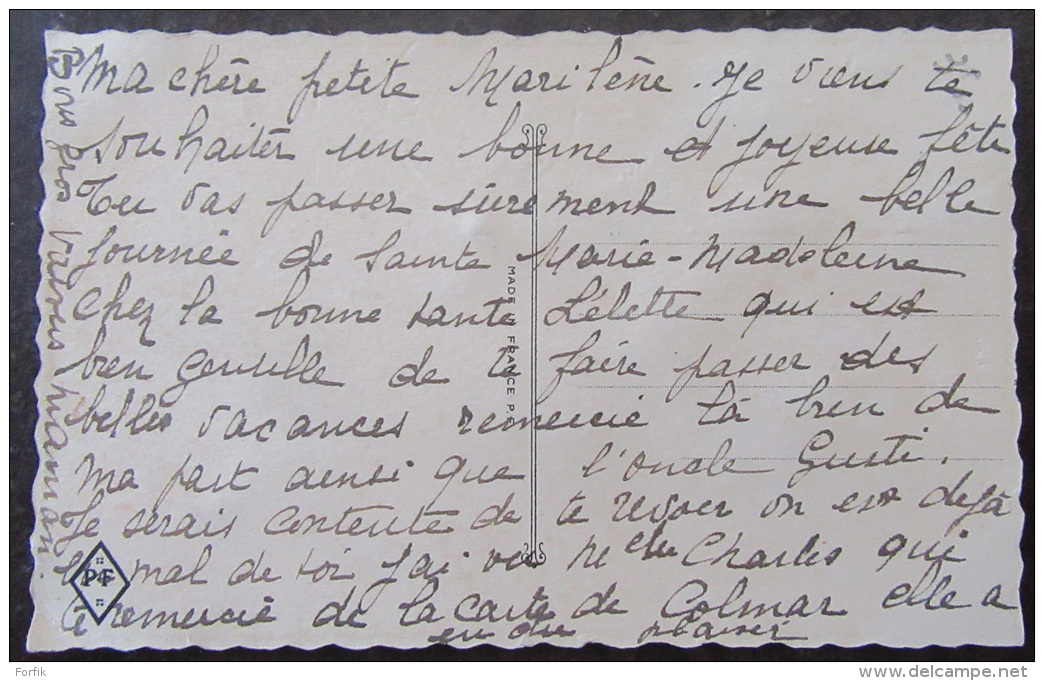 Ma chère petite Marilène. Je viens te
souhaiter une bonne et joyeuse fête
Tu vas passer sûrement une belle
journée de Sainte Marie-Madeleine
chez la bonne tante Lélette qui est
bien gentille de te faire passer des
belles vacances remercie la bien de
ma part ainsi que l'oncle Gusti.
Je serais contente de te revoir on est dejà
mal de toi J'ai vu Charles qui
te remercie de la carte de Colmar elle a
eu du plaisir
Bons gros baisers maman.
MADE IN FRANCE P.
PF
Forfik
www.delcampe.net